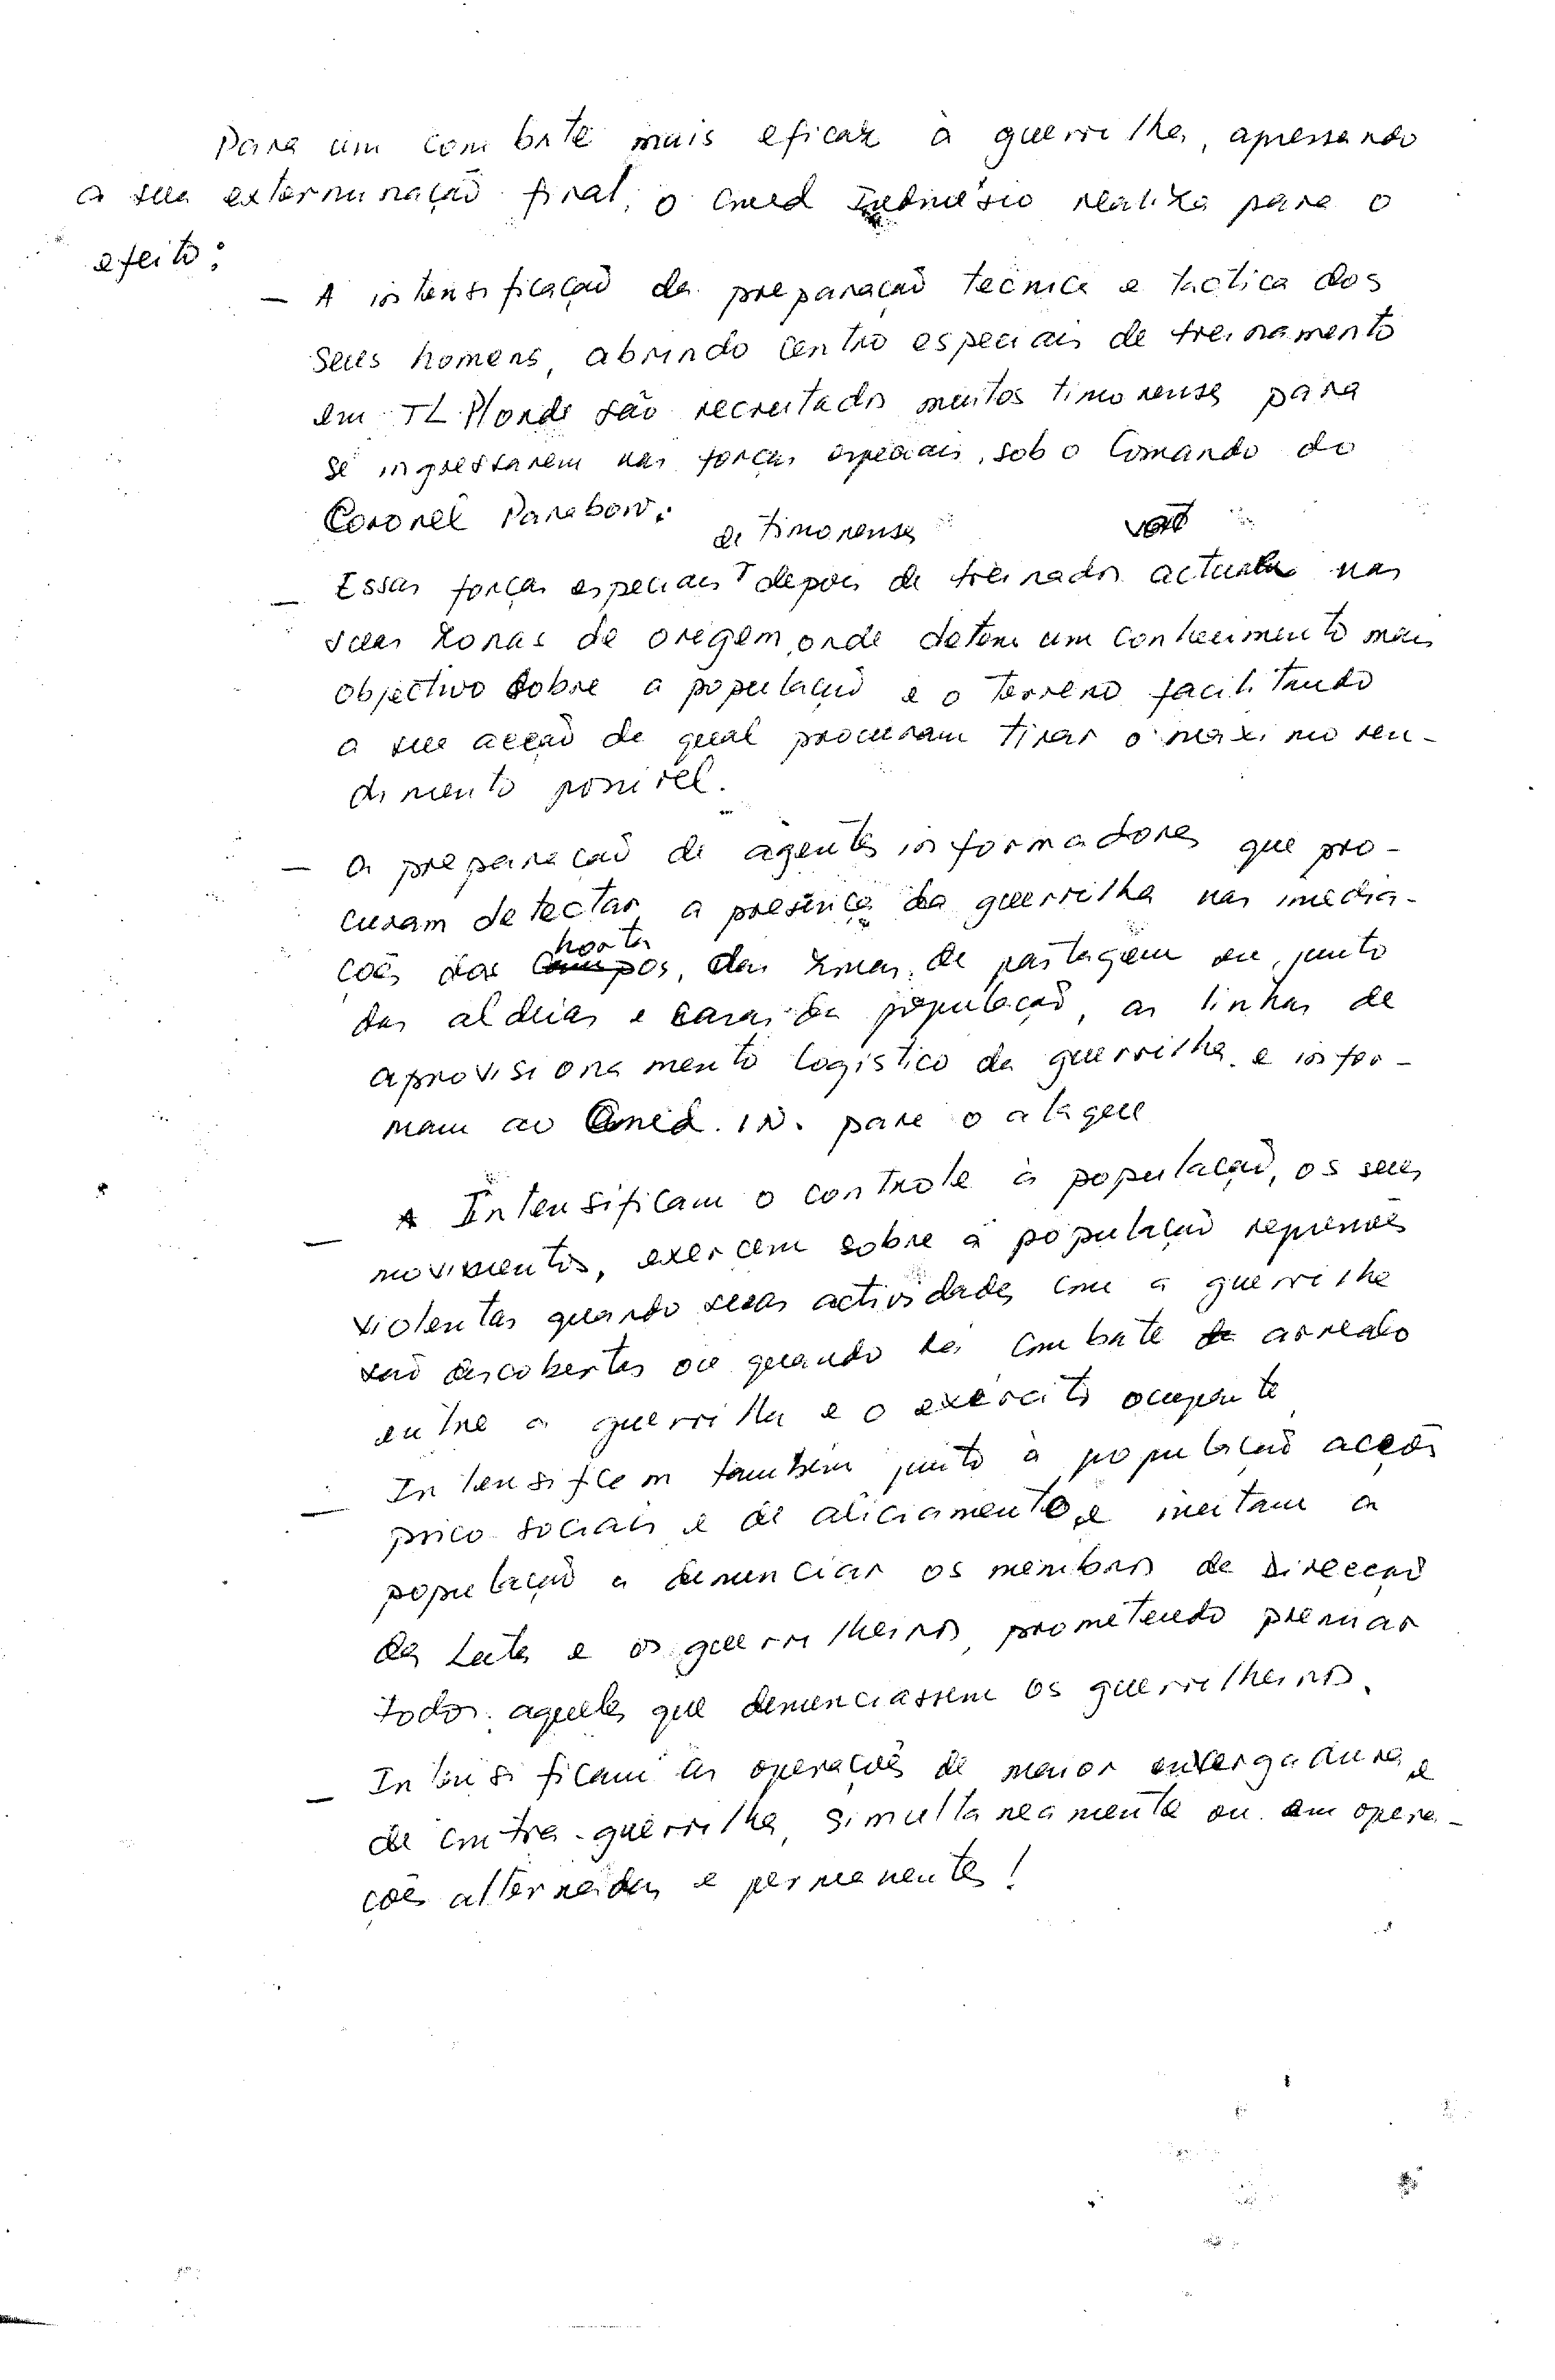 Para um combate mais eficaz à guerrilha, apressando
a sua exterminação final, o Cmed Indonésio realiza para o
efeito:
— A intensificação da preparação técnica e táctica dos
seus homens, abrindo centro especiais de treinamento
em TL. P/onde são recrutados muitos timorenses para
se ingressarem nas forças especiais, sob o Comando do
Coronel Parabow.
de timorenses vão
— Essas forças especiais depois de treinados actuar nas
suas zonas de origem, onde detem um conhecimento mais
objectivo sobre a população e o terreno facilitando
a sua acção de qual procuram tirar o maximo ren-
dimento possivel.
— a preparação de agentes informadores que pro-
curam detectar, a presença da guerrilha nas imedia-
hortas
ções das Campos, das zonas de pastagem ou, junto
das aldeias e casas da população, as linhas de
aprovisionamento logistico da guerrilha e infor-
mam ao Cmed. IN. para o ataque
— Intensificam o controle à população, os seus
movimentos, exercem sobre a população repressões
violentas quando suas actividades com a guerrilha
são descobertas ou quando há combate arredo
entre a guerrilha e o exército ocupante
— Intensificam também junto à população acções
psico sociais e de aliciamento e incitam a
população a denunciar os membros de Direcção
da Luta e os guerrilheiros, prometendo premiar
todos aqueles que denunciassem os guerrilheiros.
— Intensificam as operações de maior envergadura e
de contra-guerrilha, simultaneamente ou em opera-
ções alternadas e permanentes!